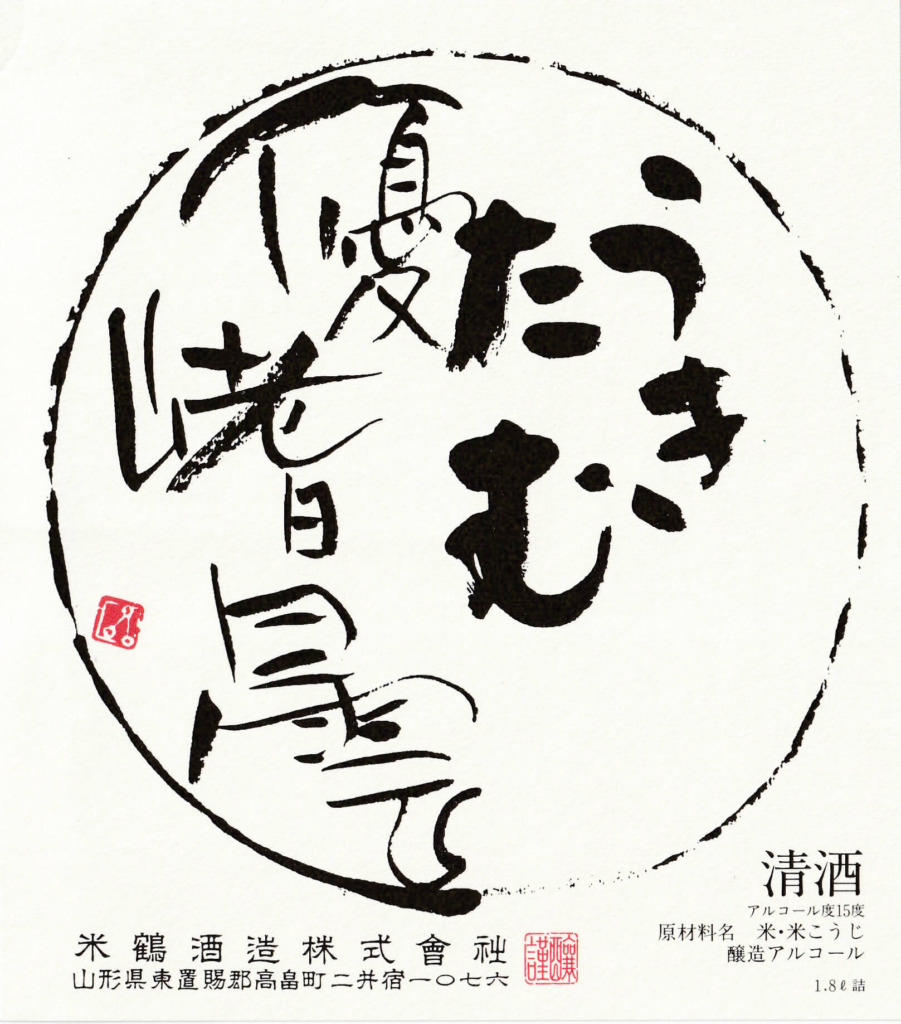 うき
たむ
優嗜曇
清酒
アルコール度15度
原材料名 米・米こうじ
醸造アルコール
1.8ℓ詰
米鶴酒造株式會社
謹醸
山形県東置賜郡高畠町二井宿一〇七六